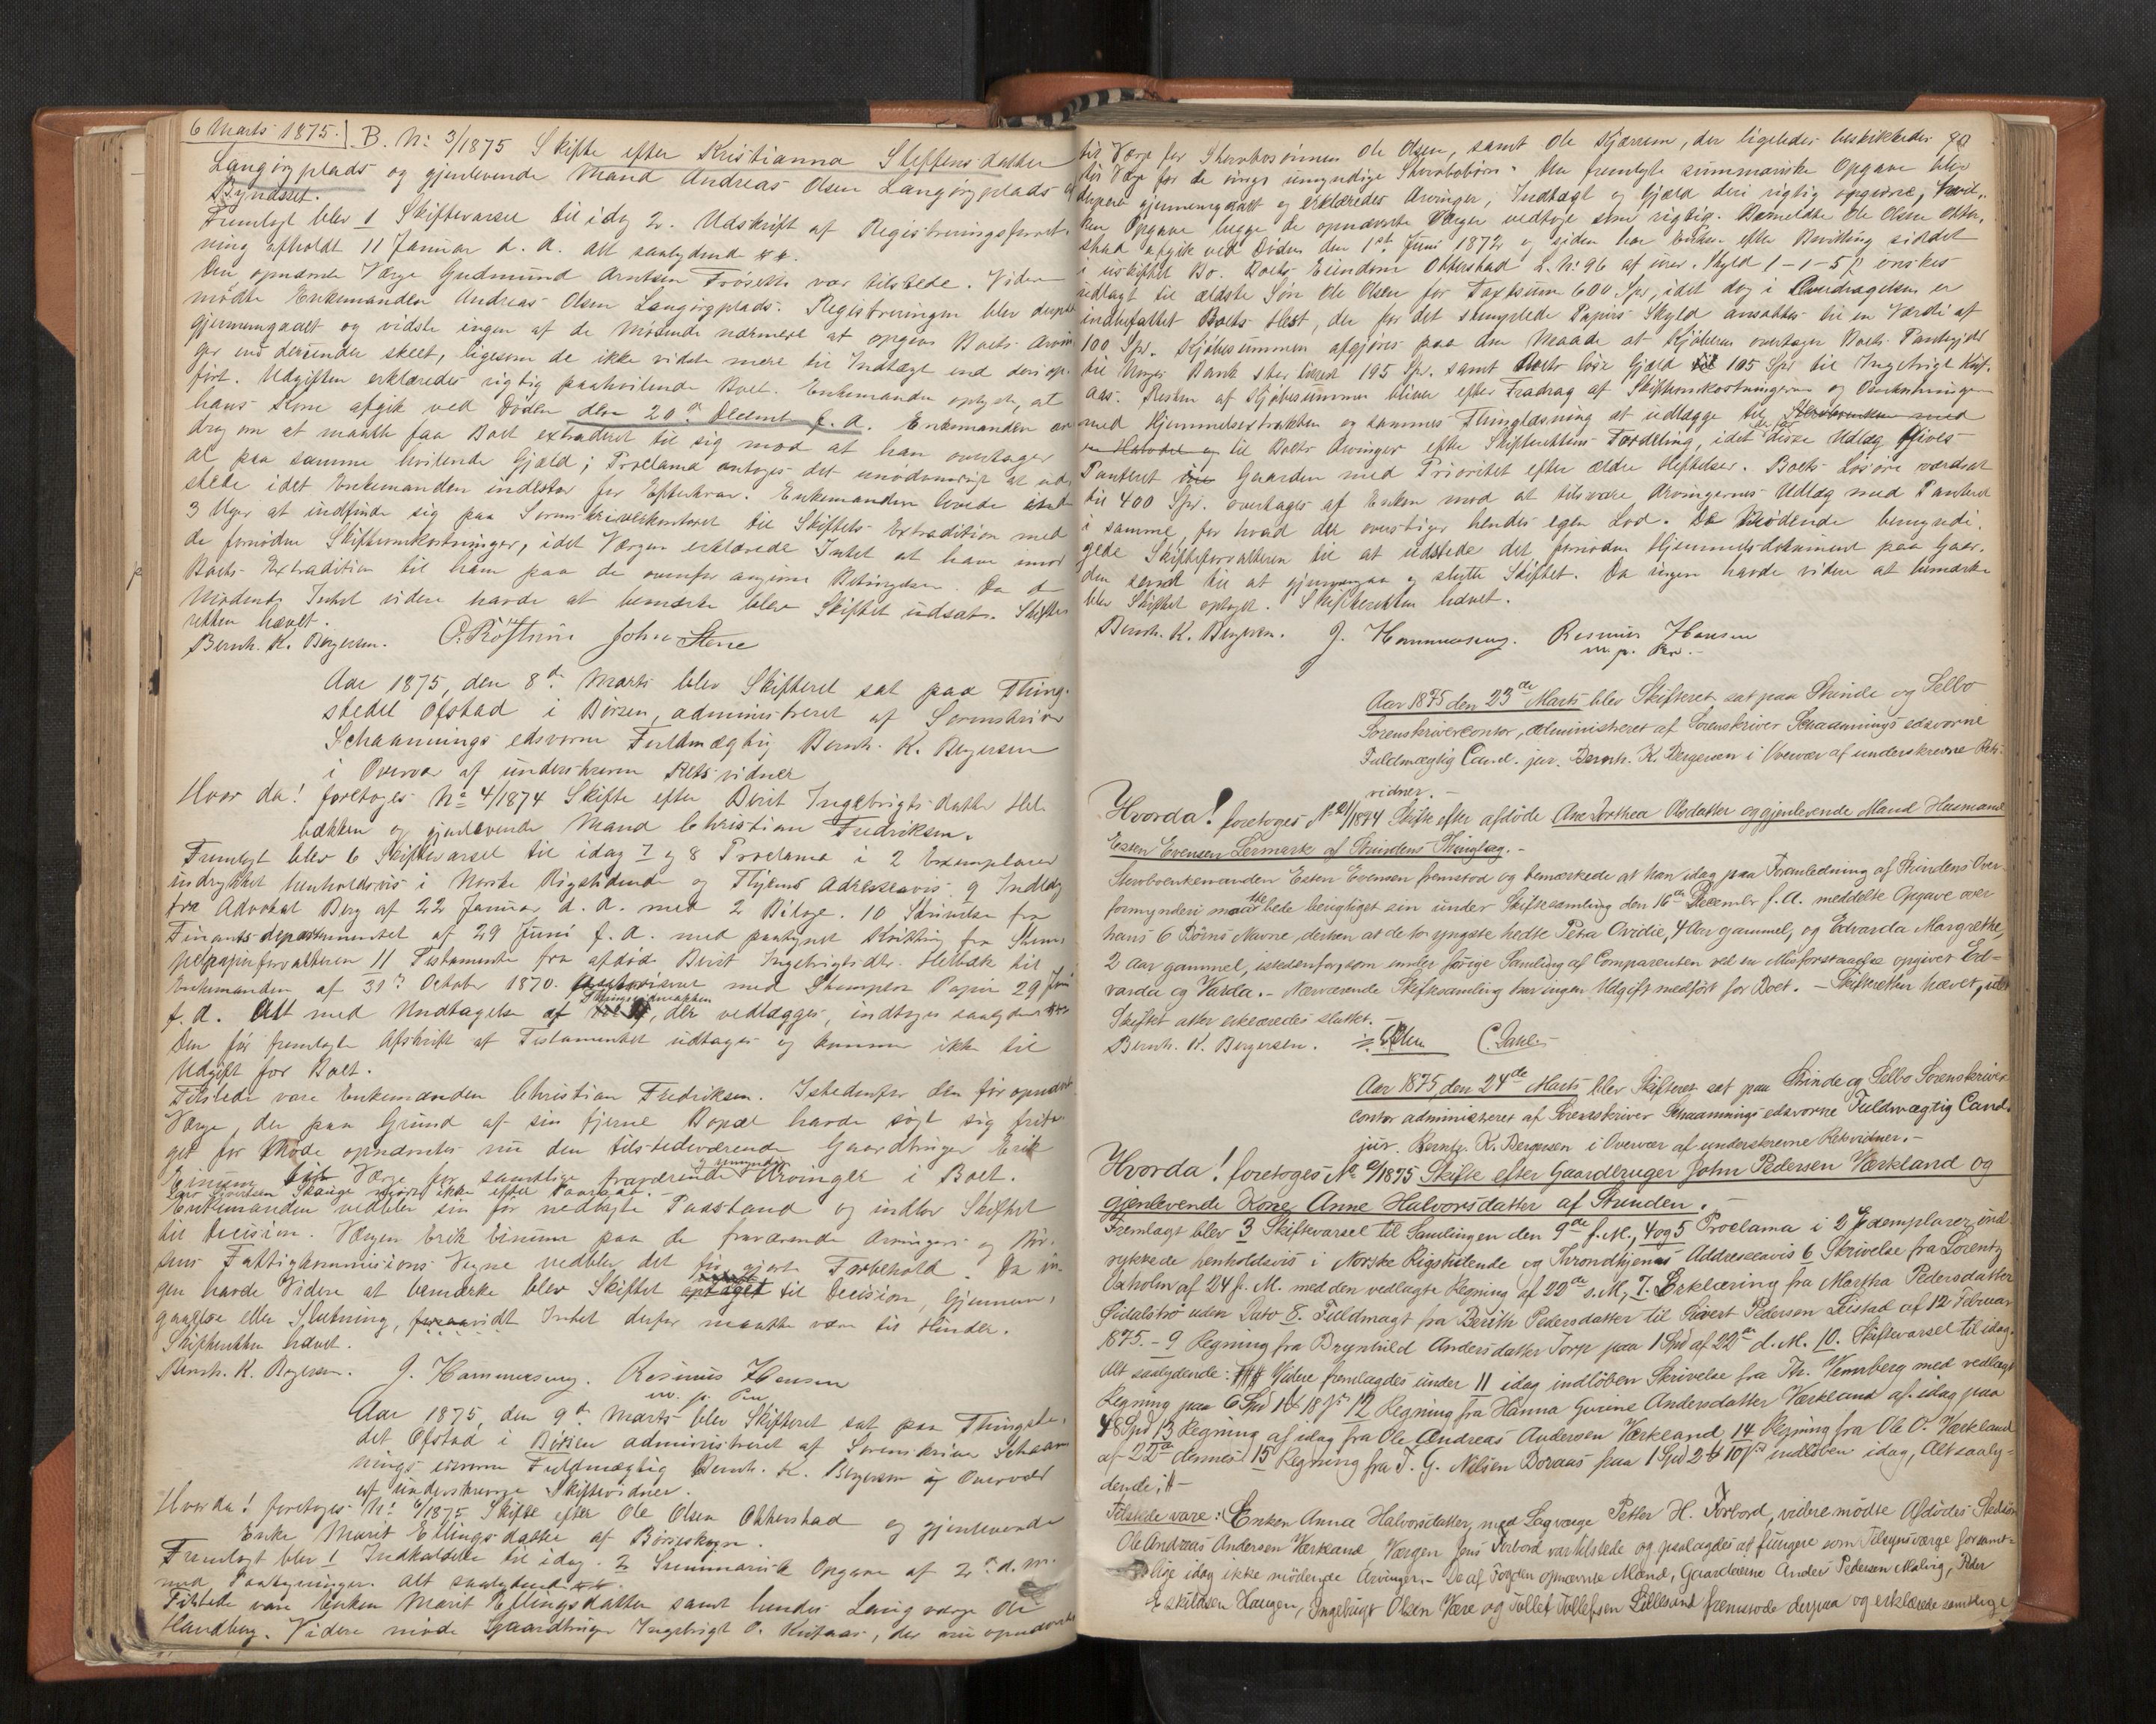 6 Marts 1875. B. No 3/1875 Skifte efter Kristianna Steffensdatter
Langørgplads og gjenlevende Mand Andreas Olsen Langørgplads af
Bynæsset.
Fremlagt blev 1 Skiftevarsel til idag 2. Udskrift af Registreringsforret-
ning afholdt 11 Januar d. A. alt saalydende
Den opnævnte Værge Gudmund Arntsen Frøseth var tilstede. Videre
mødte Enkemanden Andreas Olsen Langørgplads. Registreringen blev derpaa
gjennemgaaet og vidste ingen af de Mødende nærmere at opgive Boets Arvin-
ger end derunder skeet, ligesom de ikke vidste mere til Indtægt end deri op-
ført. Udgiften erklæredes rigtig paahvilende Boet. Enkemanden oplyste, at
hans Kone afgik ved Døden den 20de Decembr f. A. Enkemanden an-
drog om at maatte faa Boet extraderet til sig mod at han overtager
al paa samme hvilende Gjæld; Proclama antoges det unødvendigt at ud-
stede idet Enkemanden indestaar for Efterkrav. Enkemanden lovede inden
3 Uger at indfinde sig paa Sorenskriverkontoret til Skiftets Extradition med
de fornødne Skifteomkostninger, idet Værgen erklærede Intet at have imod
Boets Extradition til ham paa de ovenfor angivne Betingelser. Da de
Mødende Intet videre havde at bemærke blev Skiftet udsat. Skifte-
retten hævet.
Bernh. K. Bergersen. O. Røstum John Stene
Aar 1875, den 8de Marts blev Skifteret sat paa Thing-
stedet Ofstad i Børsen, administreret af Sorenskriver
Schaannings edsvorne Fuldmægtig Bernh. K. Bergersen
i Overvær af underskrevne Retsvidner
Hvor da! foretoges No 4/1874 Skifte efter Berit Ingebrigtsdatter Hel-
bækken og gjenlevende Mand Christian Fredriksen.
Fremlagt blev 6 Skiftevarsel til idag 7 og 8 Proclama i 2 Exemplarer
indrykket henholdsvis i Norske Rigstidende og Thjems Adresseavis 9 Indlæg
fra Advokat Berg af 22 Januar d. A. med 2 Bilage. 10 Skrivelse fra
Finantsdepartementet af 29 Juni f. A. med paategnet Kvittering fra Stem-
pelpapirforvalteren 11 Testamente fra afdøde Berit Ingebrigtsdtr. Helbæk til
Enkemanden af 31te October 1870. med Stemplet Papir 29 Juni
f. A. Alt med Undtagelse af, der vedlægges, indtages saalydende
Den før fremlagte Afskrift af Testamentet udtages og kommer ikke til
Udgift for Boet.
Tilstede vare Enkemanden Christian Fredriksen. Istedenfor den før opnævnte
Værge, der paa Grund af sin fjerne Bopæl havde søgt sig frita-
get for Møde opnævntes nu den tilstedeværende Gaardbruger Erik
Einum til Værge for samtlige fraværende og umyndige Arvinger i Boet.
Lars Sivertsen Skauge mødte ikke efter Paaraab.
Enkemanden vedblev sin før nedlagte Paastand og indlod Skiftet
til Decision. Værgen Erik Einum paa de fraværende Arvingers og Bør-
sens Fattigkommissions Vegne vedblev det før gjorte Forbehold. Da in-
gen havde Videre at bemærke blev Skiftet optaget til Decision, Gjennem-
gaaelse eller Slutning, forsaavidt Intet derfor maatte være til Hinder.
Skifteretten hævet.
Bernh. K. Bergersen. J. Hammerseng. Rasmus Hansen
m. p. Pen
Aar 1875, den 9de Marts blev Skifteret sat paa Thingste-
det Ofstad i Børsen administreret af Sorenskriver Schaan-
nings edsvorne Fuldmægtig Bernh. K. Bergersen og Overvær
af underskrevne Skiftevidner.
Hvorda! foretoges No 6/1875 Skifte efter Ole Olsen Otterstad og gjenlevende
Enke Marit Ellingsdatter af Børseskogn.
Fremlagt blev 1 Indkaldelse til idag. 2 Summarisk Opgave af 2de d. M.
med Paategninger. Alt saalydende
Tilstede vare Enken Marit Ellingsdatter samt hendes Laugværge Ole
Handberg. Videre møde Gaardbruger Ingebrigt O. Kufaas, der nu opnævnes
90
til Værge for Sterbosønnen Ole Olsen, samt Ole Kjærem, der ligeledes beskikkedes
til Værge for de øvrige umyndige Sterbobørn. Den fremlagte summariske Opgave blev
derpaa gjennemgaaet og erklæredes Arvinger, Indtægt og Gjæld deri rigtig opgivne, hvil-
ken Opgave begge de opnævnte Værger vedtoge som rigtig. Bemeldte Ole Olsen Otter-
stad afgik ved Døden den 1ste Juni 1872 og siden har Enken efter Bevilling siddet
i uskiftet Bo. Boets Eiendom Otterstad L. No 96 af urev. Skyld 1-1-5 ß ønskes
udlagt til ældste Søn Ole Olsen for Taxtsum 600 Spd, idet dog i Overdragelsen er
indbefattet Boets Hest, der for det stemplede Papirs Skyld ansættes til en Værdi af
100 Spd. Kjøbesummen afgjøres paa den Maade at Kjøberen overtager Boets Pantegjæld
til Norges Bank stor tilrest 195 Spd. samt Boets løse Gjæld 105 Spd til Ingebrigt Kuf-
aas. Resten af Kjøbesummen bliver efter Fradrag af Skifteomkostningerne og Omkostningen
med Hjemmelsextrakten og sammes Thinglæsning at udlægge til Sterboenken med
en Halvdel og til Boets Arvinger efter Skifterettens Fordeling, idet der for disse Udlæg gives
Panteret i Gaarden med Prioritet efter ældre Heftelser. Boets Løsøre værdsat
til 400 Spd. overtages af Enken mod at tilsvare Arvingernes Udlæg med Panteret
i samme, for hvad det overstiger hendes egen Lod. De Mødende bemyndi-
gede Skifteforvalteren til at udstede det fornødne Hjemmelsdokument paa Gaar-
den samt til at gjennemgaa og slutte Skiftet. Da ingen havde videre at bemærke
blev Skiftet optaget. Skifteretten hævet.
Bernh. K. Bergersen. J. Hammerseng. Rasmus Hansen
m. p. Pen.
Aar 1875 den 23de Marts blev Skifteret sat paa Strinde og Selbo
Sorenskrivercontor, administreret af Sorenskriver Schaannings edsvorne
Fuldmægtig Cand. jur. Bernh. K. Bergersen i Overvær af underskrevne Rets-
vidner.
Hvorda! foretoges No /1874 Skifte efter afdøde Ane Dorthea Olsdatter og gjenlevende Mand Husmand
Esten Evensen Lermark af Strindens Thinglag.
Sterboenkemanden Esten Evensen fremstod og bemærkede at han idag paa Foranledning af Strindens Over-
formynderi maatte bede berigtiget sin under Skiftesamling den 16de December f. A. meddelte Opgave over
hans 6 Børns Navne, derhen at de to yngste hedte Petra Ovidie, 4 Aar gammel, og Edvarda Margrethe,
2 Aar gammel, istedenfor, som under forrige Samling af Comparenten ved en Misforstaaelse opgivet Ed-
varda og Varda. Nærværende Skiftesamling har ingen Udgift medført for Boet. Skifteretten hævet, idet
Skiftet atter erklæredes sluttet.
Bernh. K. Bergersen. C. Dahl.
Aar 1875, den 24de Marts blev Skifteret sat paa Strinde og Selbo Sorenskriver-
contor administreret af Sorenskriver Schaannings edsvorne Fuldmægtig Cand.
jur. Bernh. K. Bergersen i Overvær af underskrevne Retsvidner.
Hvorda! foretoges No /1875 Skifte efter Gaardbruger John Pedersen Værkland og
gjenlevende Kone Anne Halvorsdatter af Strinden.
Fremlagt blev 3 Skiftevarsel til Samlingen den 9de f. M., 4 og 5 Proclama i 2 Exemplarer ind-
rykkede henholdsvis i Norske Rigstidende og Throndhjems Addresseavis 6 Skrivelse fra Lorentz
Oxholm af 24 f. M. med den vedlagte Regning af 22de s. M., 7. Erklæring fra Martha Pedersdatter
uden Dato 8. Fuldmagt fra Berith Pedersdatter til Sivert Pedersen Leistad af 12 Februar
1875. 9 Regning fra Brynhild Andersdatter Torp paa 1 Spd af 22de d. M. 10. Skiftevarsel til idag.
Alt saalydende: Videre fremlagdes under 11 idag indløben Skrivelse fra Th. Wennberg med vedlagt
Regning paa 6 Spd 1 18 ß 12 Regning fra Hanna Gurine Andersdatter Værkland af idag paa
48 Spd 13 Regning af idag fra Ole Andreas Andersen Værkland, 14 Regning fra Ole O. Værkland
af 22de dennes 15 Regning fra T. G. Nilsen Boraas paa 1 Spd 2 10 ß indløben idag, Alt saaly-
dende,
Tilstede vare: Enken Anna Halvorsdatter, med Lagværge Petter H. Forbord, videre mødte Afdødes Stedsøn
Ole Andreas Andersen Værkland Værgen Jens Forbord var tilstede og paalagdes at fungere som Tilsynsværge for samt-
lige idag ikke mødende Arvinger. De af Fogden opnævnte Mænd, Gaardeierne Anders Pedersen Malvig, Peder
Eskildsen Haugen, Ingebrigt Olsen Være og Tollef Tollefsen Lillesand fremstode derpaa og erklærede samtlige